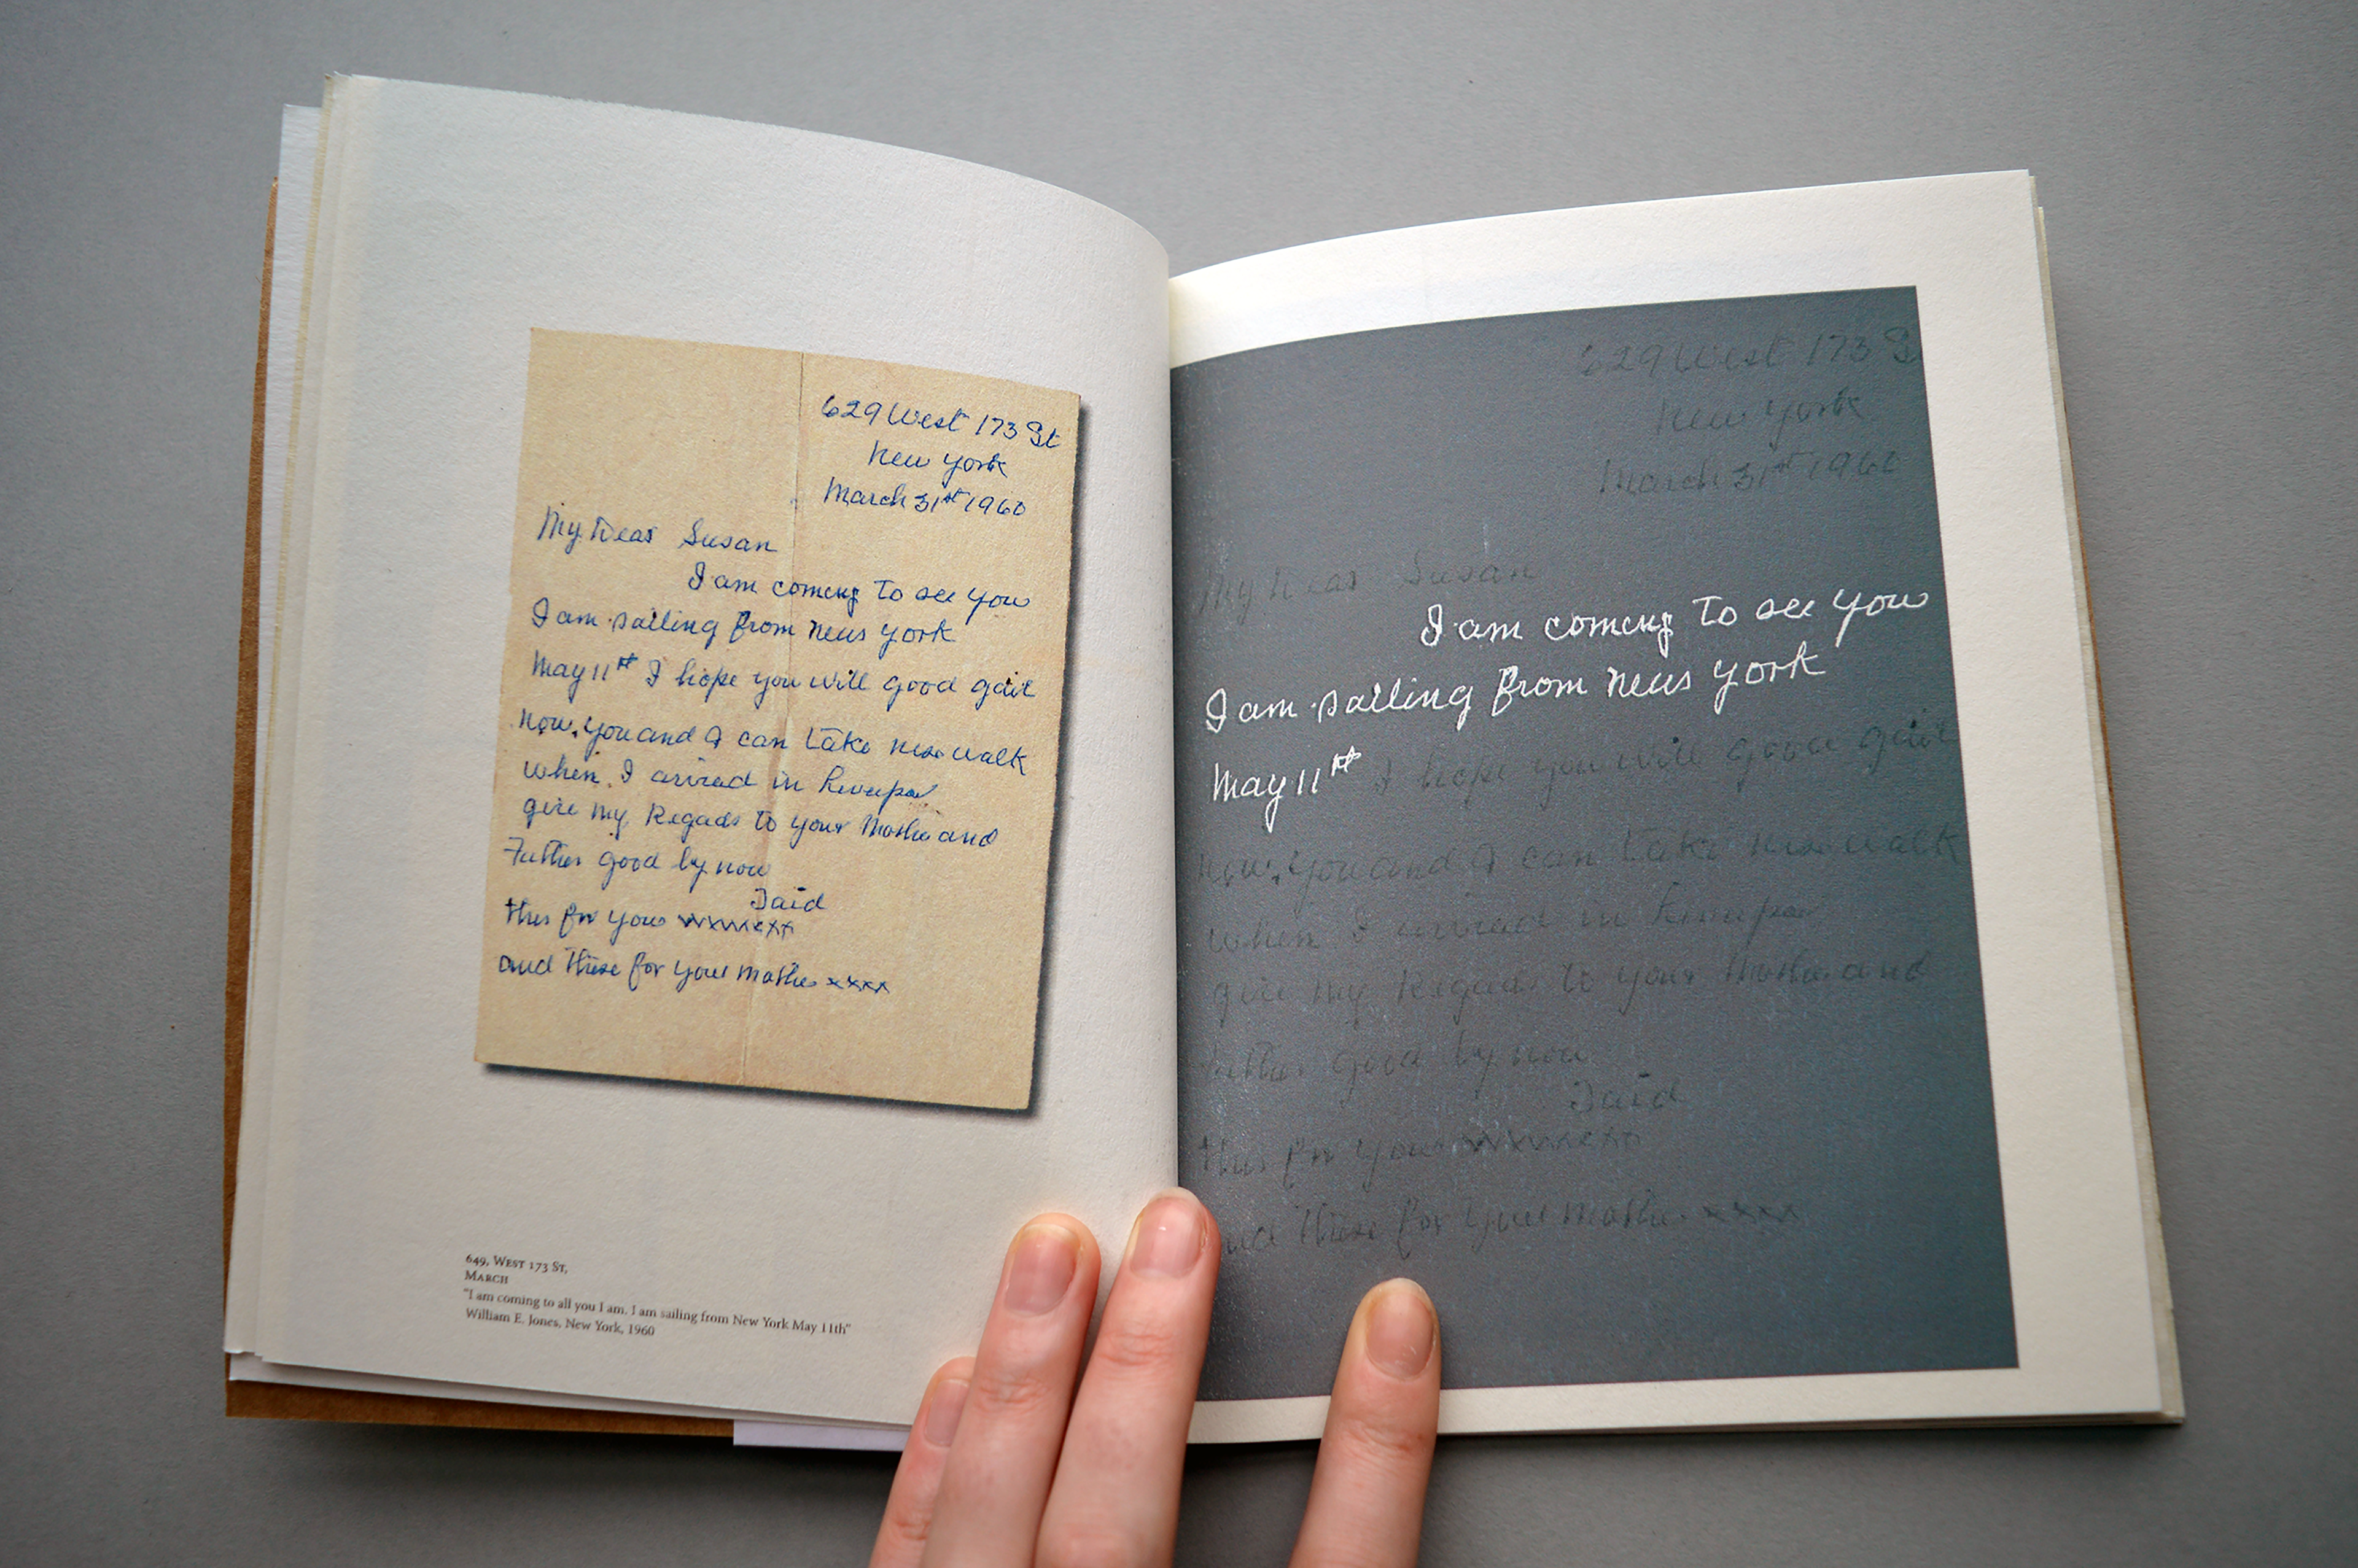 629 West 173 St
New York
March 31st 1960
My Dear Susan
I am coming to see you
I am sailing from New York
May 11st I hope you will good
now, you and I can take walk
when I arived in
give my Regads to your Mothe and
Father good by now
Taid
this for you xxxxxxx
and these for your mothe xxxx
649, WEST 173 ST,
MARCH
"I am coming to all you I am. I am sailing from New York May 11th"
William E. Jones, New York, 1960
629 West 173 St
New York
March 31st 1960
My Dear Susan
I am coming to see you
I am sailing from New York
May 11st I hope you will good
now, you and I can take walk
when I arived in
give my Regads to your Mothe and
Father good by now
Taid
this for you xxxxxxx
and these for your mothe xxxx